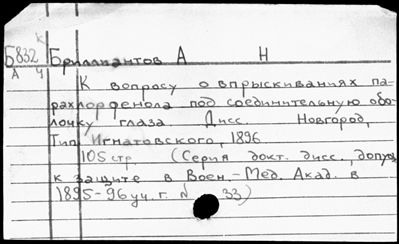 К
Б832 Бриллиантов А Н
А Ч
К вопросу о впрыскиваниях па-
рахлорфенола под соединительную обо-
лочку глаза Дисс. Новгород,
Тип Игнатовского, 1896
105 стр, (Серия докт. дисс., допущ
к защите в Воен.-Мед. Акад. в
1895-96 уч. г. № 33)